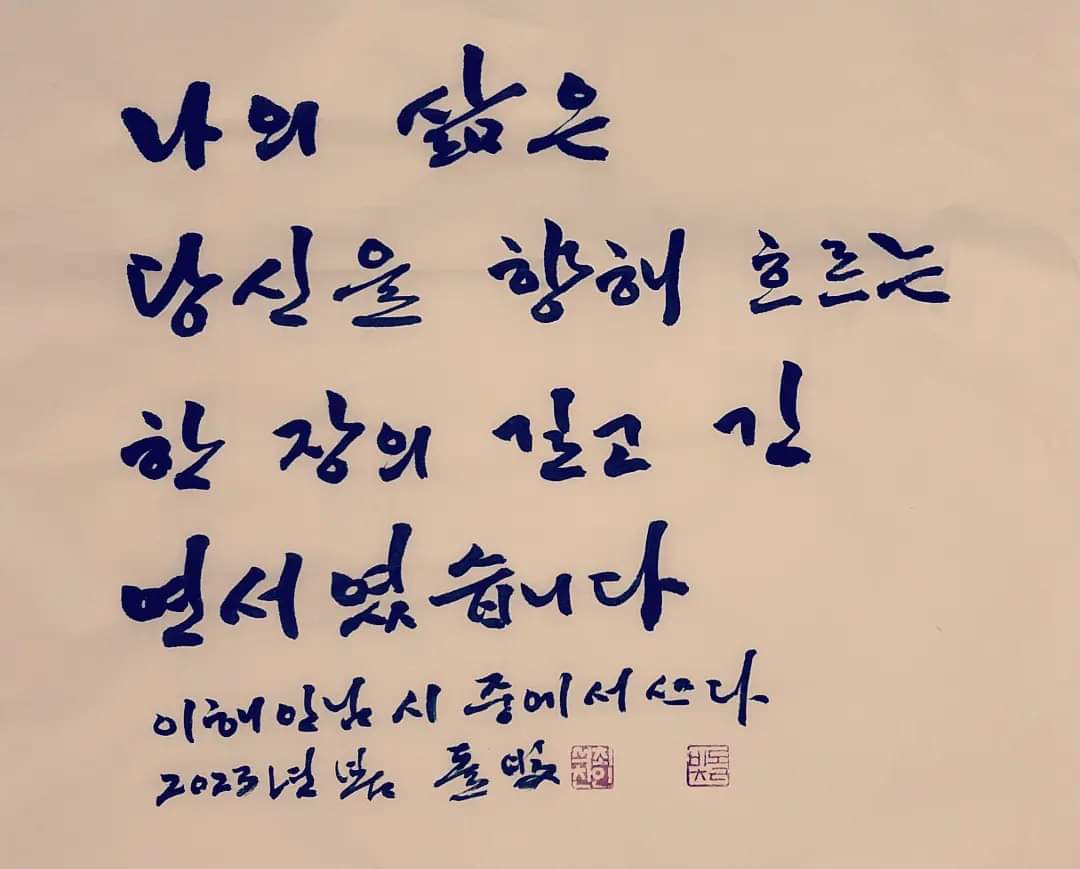 나의 삶은
당신을 향해 흐르는
한 장의 길고 긴
연서였습니다
이해인님 시 중에서 쓰다
2023년 봄 돌빛